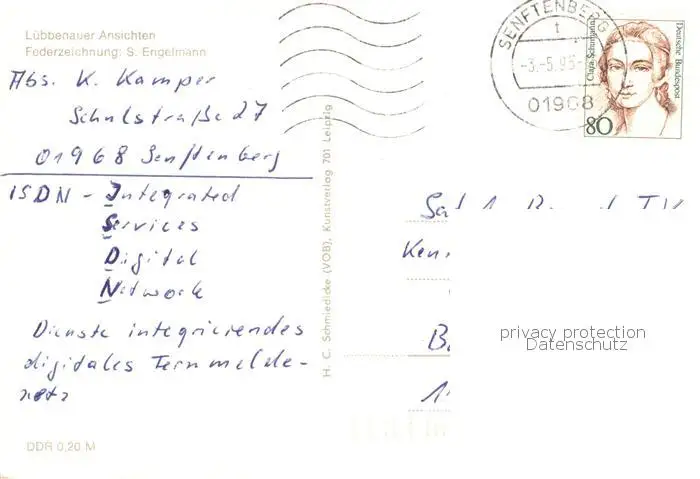 Lübbenauer Ansichten
Federzeichnung: S. Engelmann
Abs. K. Kamper
Schulstraße 27
01968 Senftenberg
ISDN - Integrated
Services
Digital
Network
Dienste integrierendes
digitales Fernmelde-
netz
DDR 0,20 M
H. C. Schmiedicke (VOB), Kunstverlag 701 Leipzig
SENFTENBERG
t
-3.-5.93-
01968
Deutsche Bundespost
Clara Schumann
80
privacy protection
Datenschutz